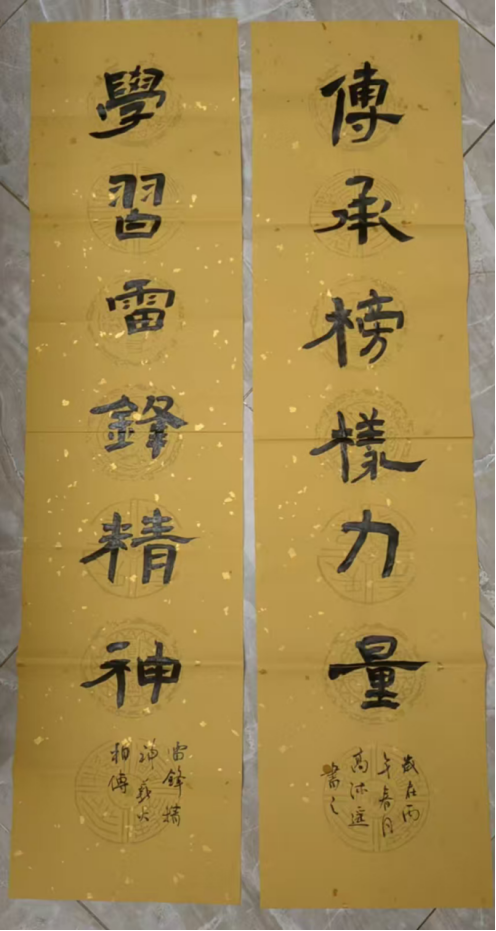 傳承榜樣力量
歲在丙
午春月
高沐
書之
學習雷鋒精神
雷鋒精
神薪火
相傳